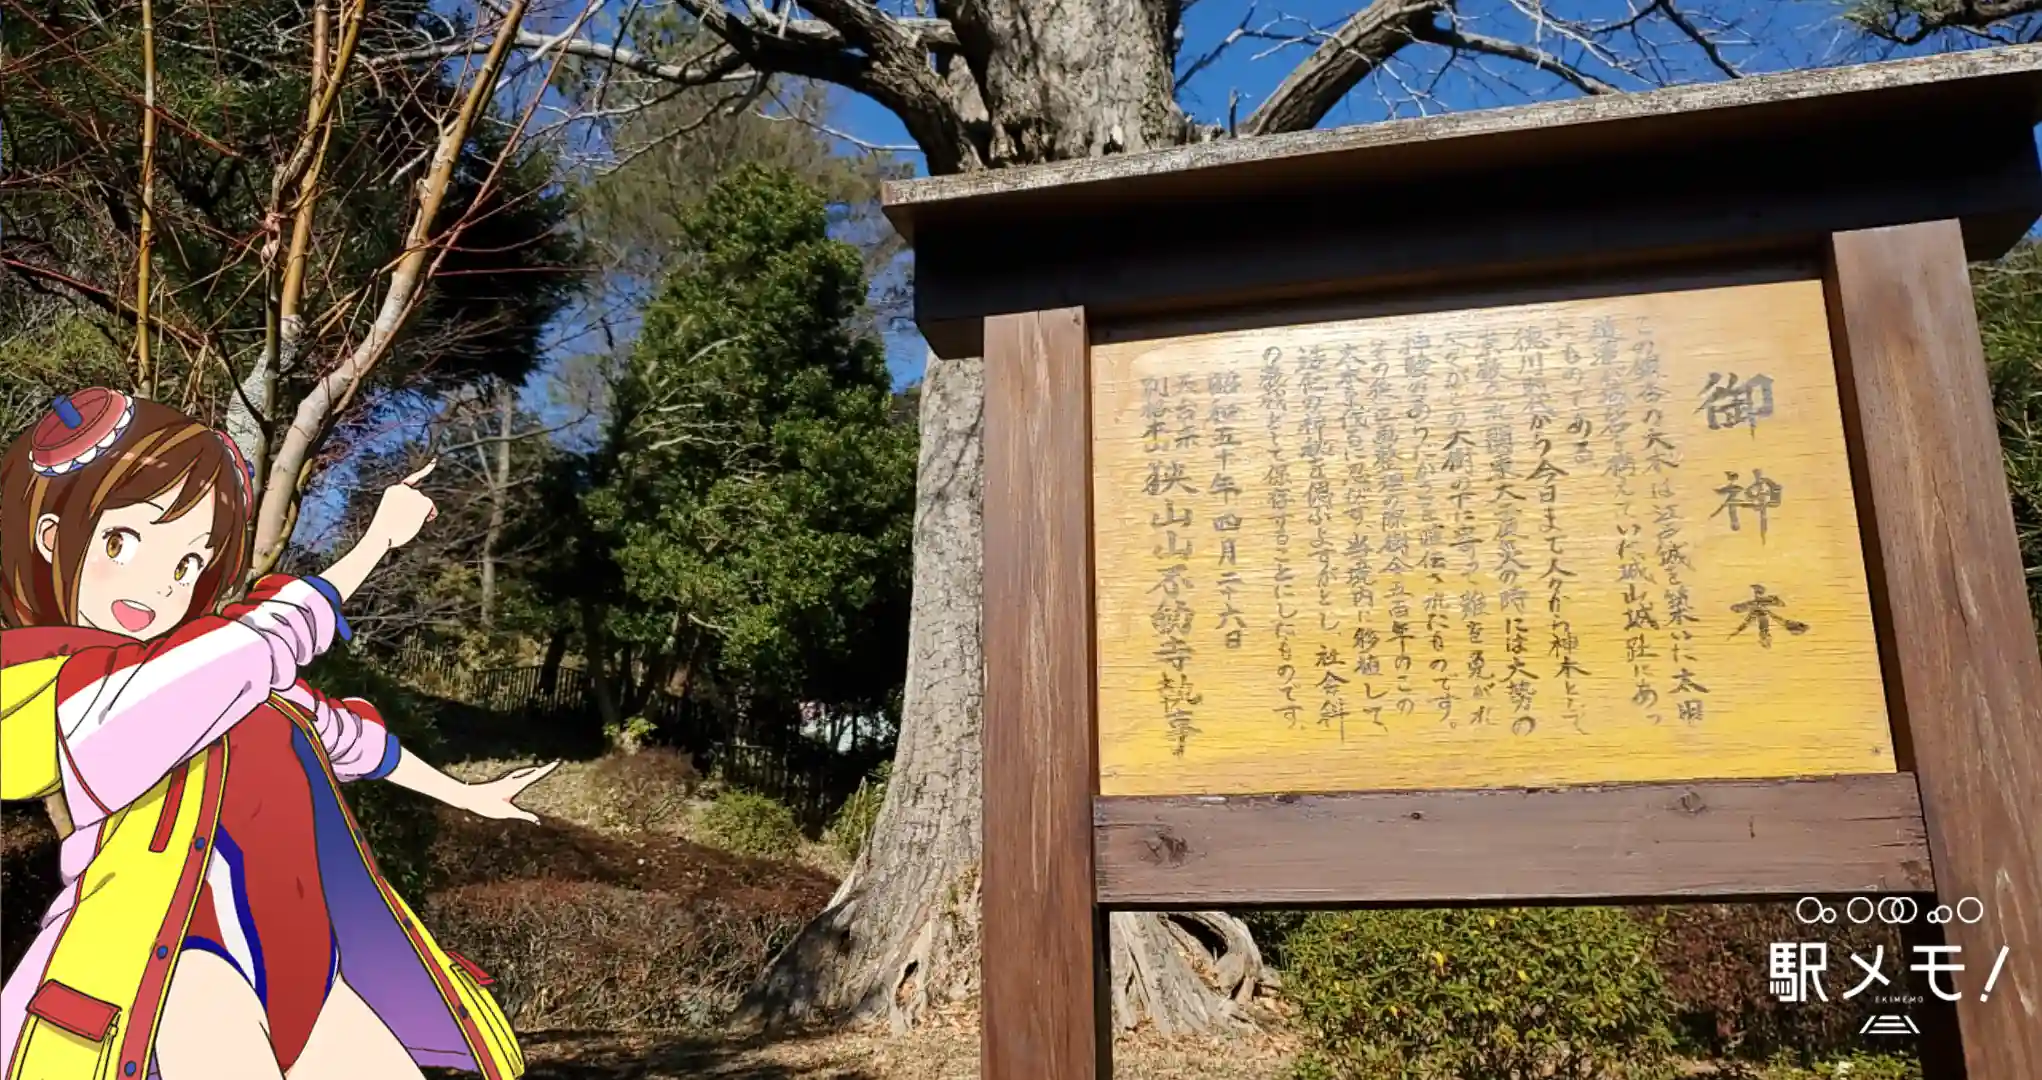 御神木
この銀杏の大木は江戸城を築いた太田
道灌が城砦を構えていた城山城趾にあっ
たものである
徳川時代から今日まで人々から神木として
崇敬され関東大震災の時には大勢の
人々がこの大樹の下に寄って難を免がれ
神験のあらたかさを証伝されたものです。
その後区画整理の際樹令五百年のこの
大木を伐るに忍びず、当境内に移植して
を偲ぶよすがとし、社会
の として保存することにしたものです。
昭和五十年四月二十六日
天台宗
別格本山狭山山不動寺執事
駅メモ!
EKIMEMO